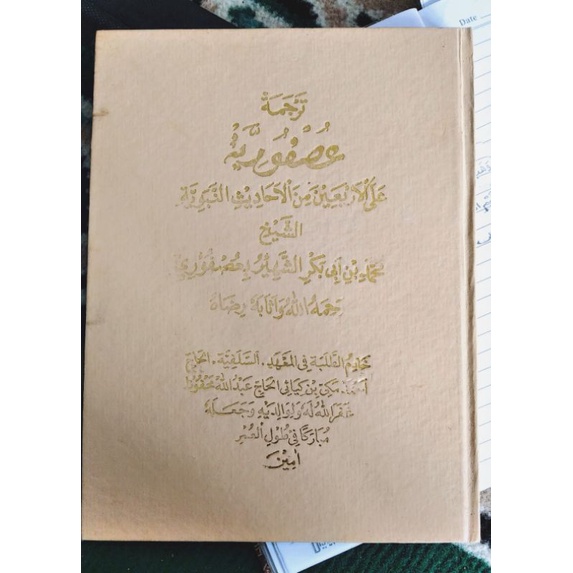 Date
تَرْجَمَةْ
عُصْفُورِيَّةْ
عَلَى الْاَرْبَعِيْنَ مِنَ الْاَحَادِيْثِ النَّبَوِيَّةِ
الشَّيْخ
مُحَمَّد بْنِ اَبِى بَكْرِ الشَّهِيْر بِعُصْفُوْرِى
رَحِمَهُ اللّٰهُ وَاَثَابَهُ رِضَاهُ
خَادِمُ الطَّلَبَةِ فِى الْمَعْهَدِ. السَّلَفِيَّة. الحَاج
مَكِى بْن كِيَاهِى الحَاج عَبْدُ اللّٰه مَحْفُوظ
غَفَرَ اللّٰهُ لَهُ وَلِوَالِدَيْهِ وَجَعَلَهُ
مُبَارَكًا فِى طُوْلِ الْعُمْرِ
اٰمِيْن